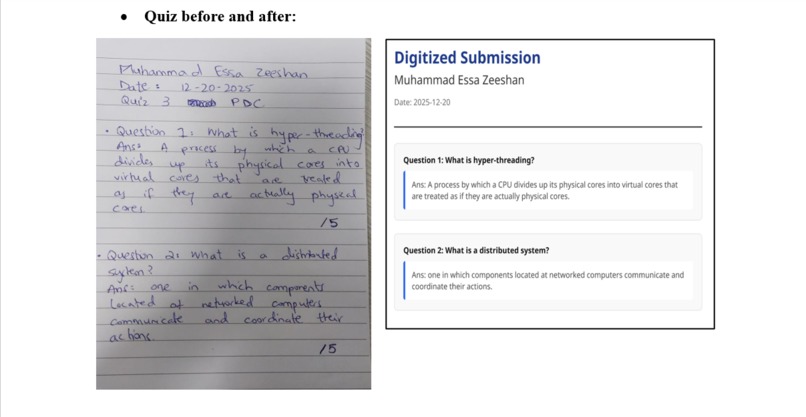 • Quiz before and after:
Muhammad Essa Zeeshan
Date : 12-20-2025
Quiz 3 PDC
• Question 1: What is hyper-threading?
Ans: A process by which a CPU
divides up its physical cores into
virtual cores that are treated
as if they are actually physical
cores.
/5
• Question 2: What is a distributed
system?
Ans: one in which components
located at networked computers
communicate and coordinate their
actions.
/5
Digitized Submission
Muhammad Essa Zeeshan
Date: 2025-12-20
Question 1: What is hyper-threading?
Ans: A process by which a CPU divides up its physical cores into virtual cores that
are treated as if they are actually physical cores.
Question 2: What is a distributed system?
Ans: one in which components located at networked computers communicate and
coordinate their actions.